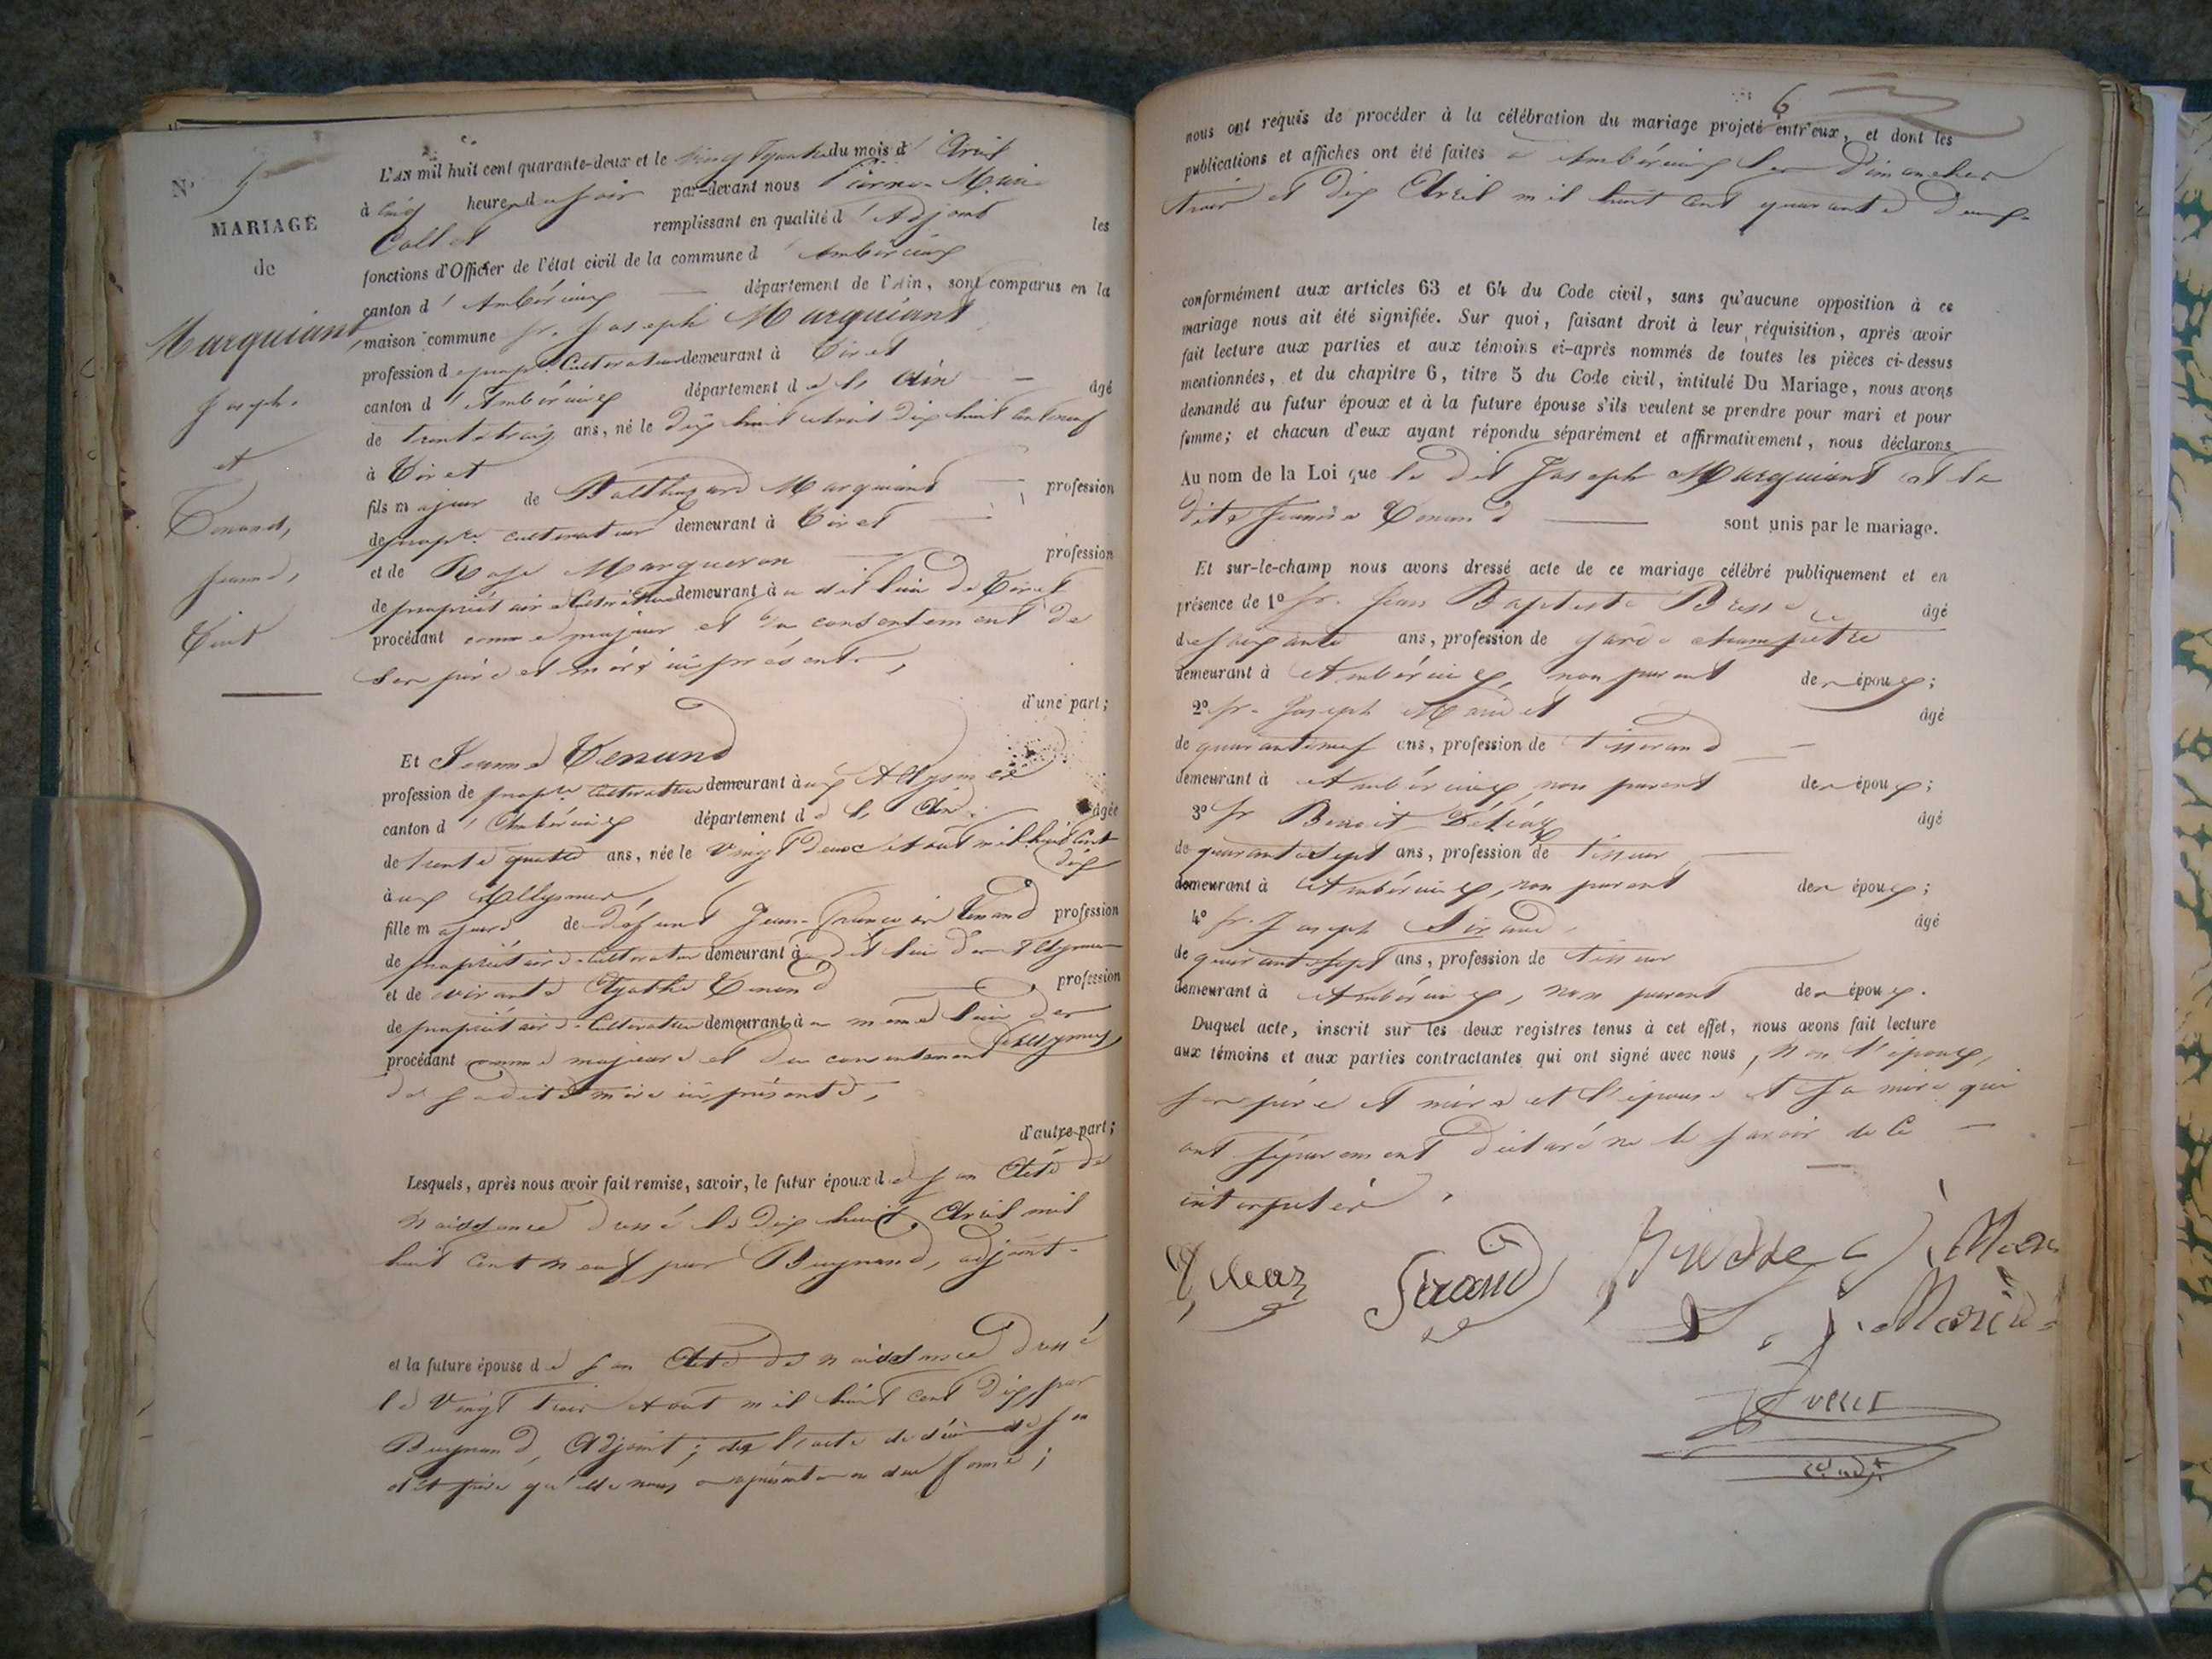 N° 5
MARIAGE
de
Marguiant
Joseph.
et
Tenand,
Jeanne,
L'AN mil huit cent quarante-deux et le vingt quatre du mois d'Avril
à cinq heures du soir par-devant nous Pierre-Marie
remplissant en qualité d'Adjoint les
fonctions d'Officier de l'état civil de la commune d'Ambérieux
canton d'Ambérieux département de l'Ain, sont comparus en la
maison commune sr. Joseph Marguiant
profession de propre. Cultivateur demeurant à Tiret
canton d'Ambérieux département de l'Ain âgé
de trente trois ans, né le dix huit Avril dix huit cent neuf
à Tiret
fils majeur de Balthazard Marguiant profession
de propre. cultivateur demeurant à Tiret
et de Rose Margueron profession
de propriétaire Cultivateur demeurant à u dit lieu de Tiret
procédant comme majeur et du consentement de
ses père et mère ici présents,
d'une part;
Et Jeanne Tenand
profession de propre. Cultivateur demeurant à ux Allymes
canton d'Ambérieux département de l'Ain. âgée
de trente quatre ans, née le vingt deux Aout mil huit cent
dix
à ux Allymes,
fille majeure de défunt Jean-François Tenand profession
de propriétaire-Cultivateur demeurant à u dit lieu des Allymes
et de vivante Agathe Tenand profession
de propriétaire-Cultivateur demeurant à u même lieu des
Allymes
procédant comme majeure et du consentement
de sa dite mère ici présente,
d'autre part;
Lesquels, après nous avoir fait remise, savoir, le futur époux de son Acte de
naissance dressé le dix huit Avril mil
huit cent neuf par Buynand, adjoint.
et la future épouse de son Acte de naissance dressé
le vingt trois Aout mil huit cent dix par
Buynand, Adjoint; de l'acte de décès de son
dit père qu'elle nous a présenté en due forme;
6
nous ont requis de procéder à la célébration du mariage projeté entr'eux, et dont les
publications et affiches ont été faites à Ambérieux les dimanches
trois et dix Avril mil huit cent quarante deux.
conformément aux articles 63 et 64 du Code civil, sans qu'aucune opposition à ce
mariage nous ait été signifiée. Sur quoi, faisant droit à leur réquisition, après avoir
fait lecture aux parties et aux témoins ci-après nommés de toutes les pièces ci-dessus
mentionnées, et du chapitre 6, titre 5 du Code civil, intitulé Du Mariage, nous avons
demandé au futur époux et à la future épouse s'ils veulent se prendre pour mari et pour
femme; et chacun d'eux ayant répondu séparément et affirmativement, nous déclarons
Au nom de la Loi que le dit Joseph Marguiant et la
dite Jeanne Tenand sont unis par le mariage.
Et sur-le-champ nous avons dressé acte de ce mariage célébré publiquement et en
présence de 1° sr. Jean Baptiste Bresse âgé
de soixante ans, profession de garde champêtre
demeurant à Ambérieux, non parent des époux;
2° sr. Joseph âgé
de quarante neuf ans, profession de tisserand
demeurant à Ambérieux, non parent des époux;
3° sr Benoit âgé
de quarante sept ans, profession de tisseur
demeurant à Ambérieux, non parent des époux;
4° sr. Joseph Sirand âgé
de quarante sept ans, profession de tisseur
demeurant à Ambérieux, non parent des époux.
Duquel acte, inscrit sur les deux registres tenus à cet effet, nous avons fait lecture
aux témoins et aux parties contractantes qui ont signé avec nous, non l'époux,
ses père et mère et l'épouse et sa mère qui
ont séparément déclaré ne le savoir de ce
interpelés.
Sirand Bresse